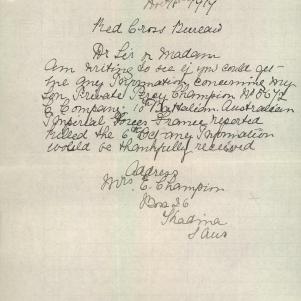 Red Cross Bureau
Dr Sir or Madam
Am writing to see if you could get
me any Information concerning my
Son Private Percy Champion No 5072
C Company 10 Battalion Australian
Imperial Forces France reported
killed the 6th Oct any Information
would be thankfully received
Address
Mrs E. Champion
Box 26
Kadina
S Aus